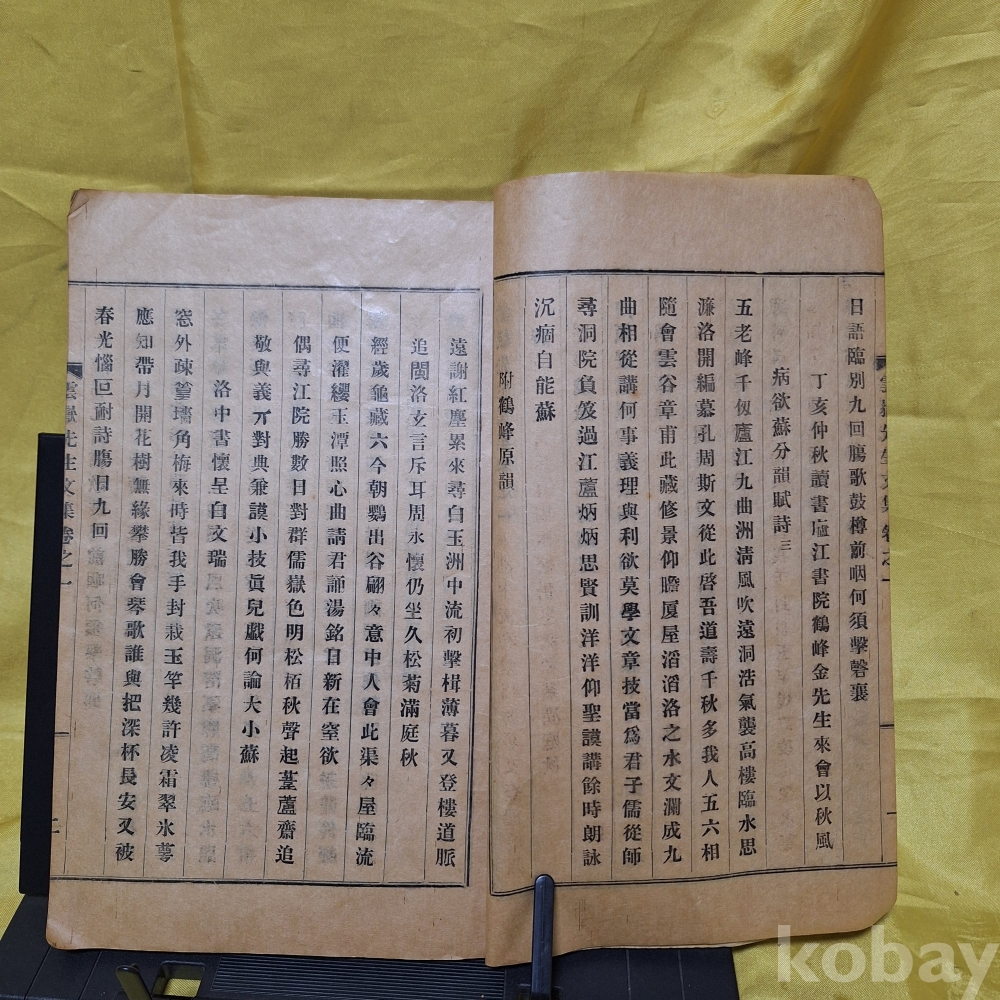 日語臨別九回膓歌鼓樽前咽何須擊磬襄
丁亥仲秋讀書廬江書院鶴峰金先生來會以秋風
病欲蘇分韻賦詩三
五老峰千仭廬江九曲洲淸風吹遠洞浩氣襲高樓臨水思
濂洛開編慕孔周斯文從此啓吾道壽千秋多我人五六相
隨會雲谷章甫此藏修景仰瞻厦屋滔滔洛之水文瀾成九
曲相從講何事義理與利欲莫學文章技當爲君子儒從師
尋洞院負笈過江蘆炳炳思賢訓洋洋仰聖謨講餘時朗詠
沉痼自能蘇
附鶴峰原韻
遠謝紅塵累來尋白玉洲中流初擊楫薄暮又登樓道脈
追閩洛玄言斥耳周永懷仍坐久松菊滿庭秋
經歲龜藏六今朝鸚出谷翩々意中人會此渠々屋臨流
便濯纓玉潭照心曲請君誦湯銘日新在窒欲
偶尋江院勝數日對群儒嶽色明松栢秋聲起蘆齋追
敬與義丌對典兼謨小技眞兒戱何論大小蘇
洛中書懷呈白文瑞
窓外疎篁墻角梅來時皆我手封栽玉竿幾許凌霜翠氷萼
應知帶月開花樹無緣攀勝會琴歌誰與把深杯長安又被
春光惱叵耐詩膓日九回
雲嶽先生文集卷之一
二
雲嶽先生文集卷之一
kobay